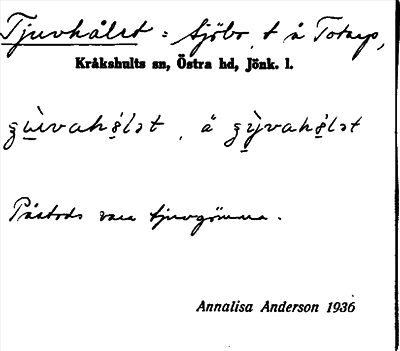 Tjuvhålet = Sjöbo, t å Totarp,
Kråkshults sn, Östra hd, Jönk. l.
å
Påstods vara tjuvgömma.
Annalisa Anderson 1936